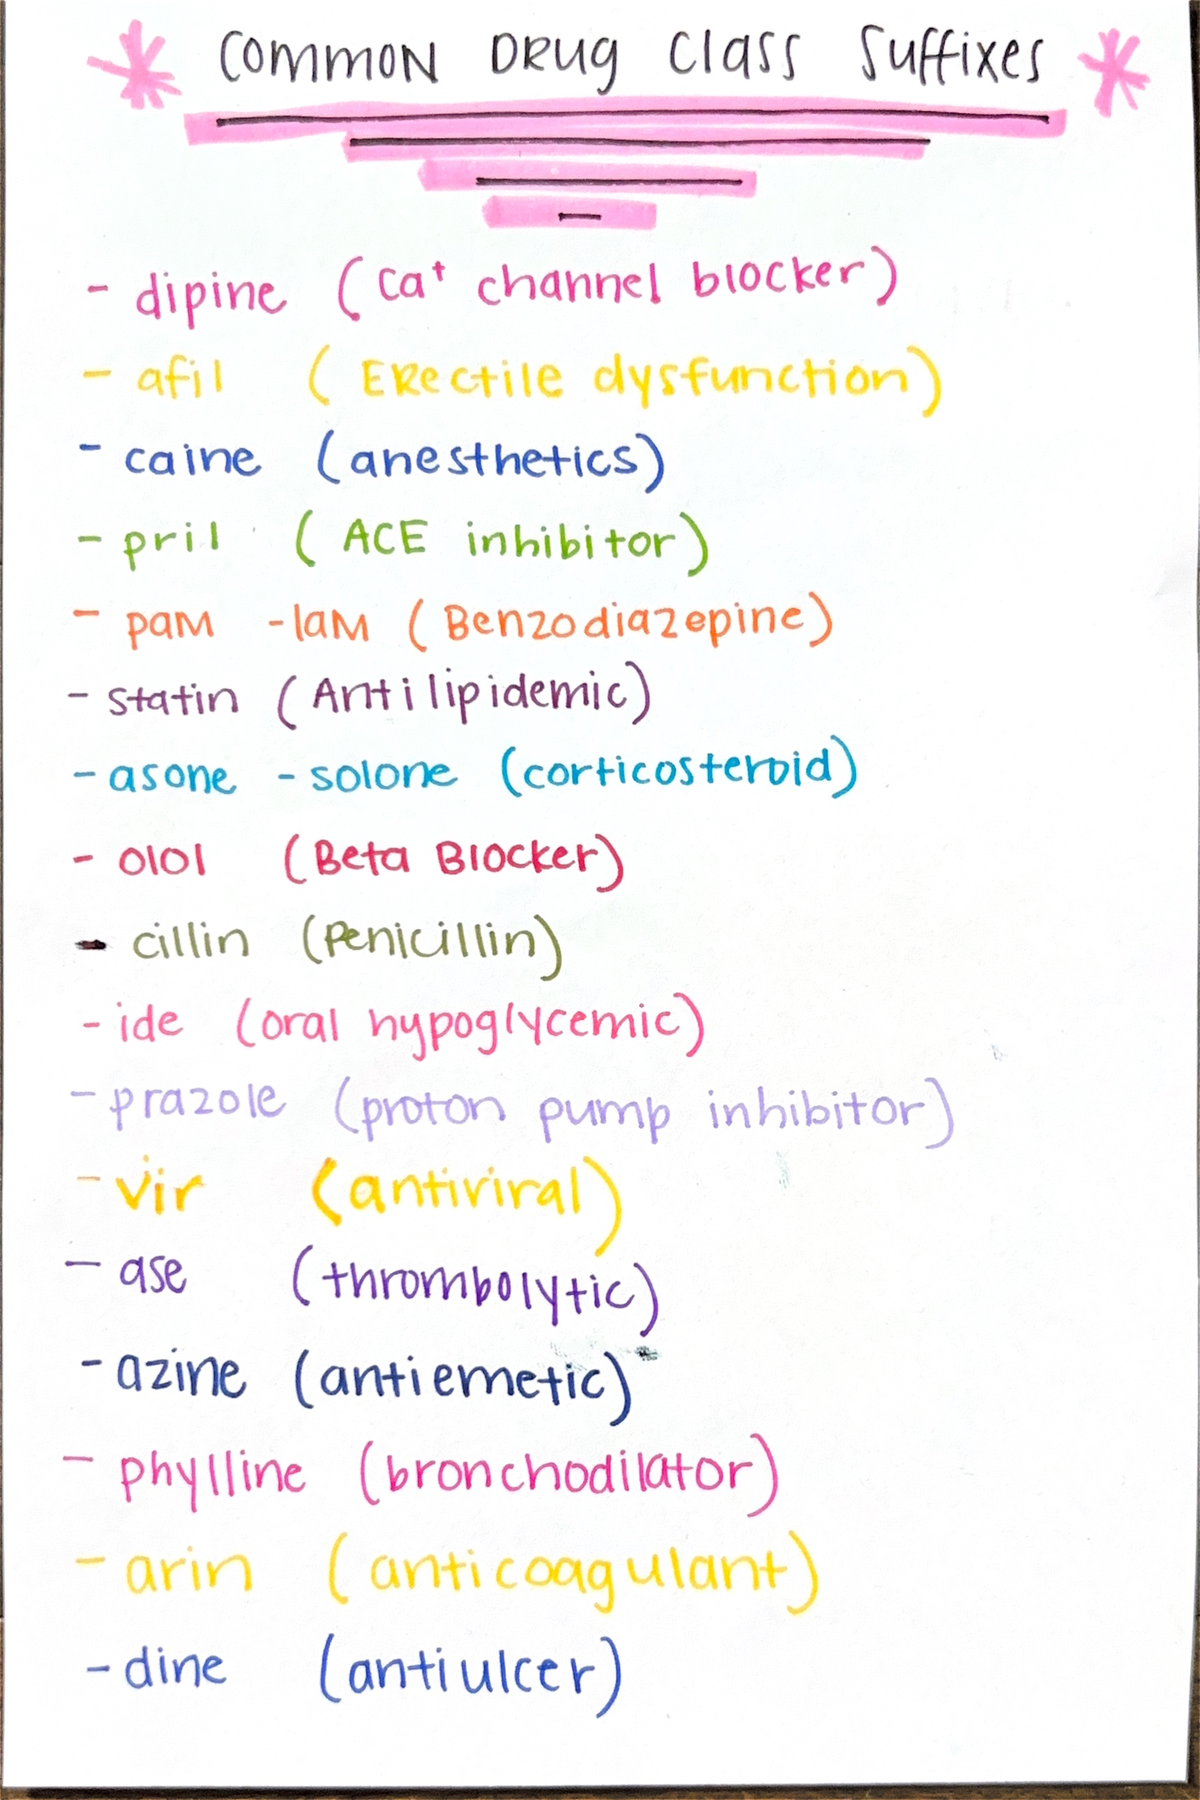 * Common Drug Class Suffixes *
- dipine (Ca⁺ channel blocker)
- afil (Erectile dysfunction)
- caine (anesthetics)
- pril (ACE inhibitor)
- pam -lam (Benzodiazepine)
- statin (Antilipidemic)
- asone - solone (corticosteroid)
- olol (Beta Blocker)
- cillin (Penicillin)
- ide (oral hypoglycemic)
- prazole (proton pump inhibitor)
- vir (antiviral)
- ase (thrombolytic)
- azine (antiemetic)
- phylline (bronchodilator)
- arin (anticoagulant)
- dine (antiulcer)